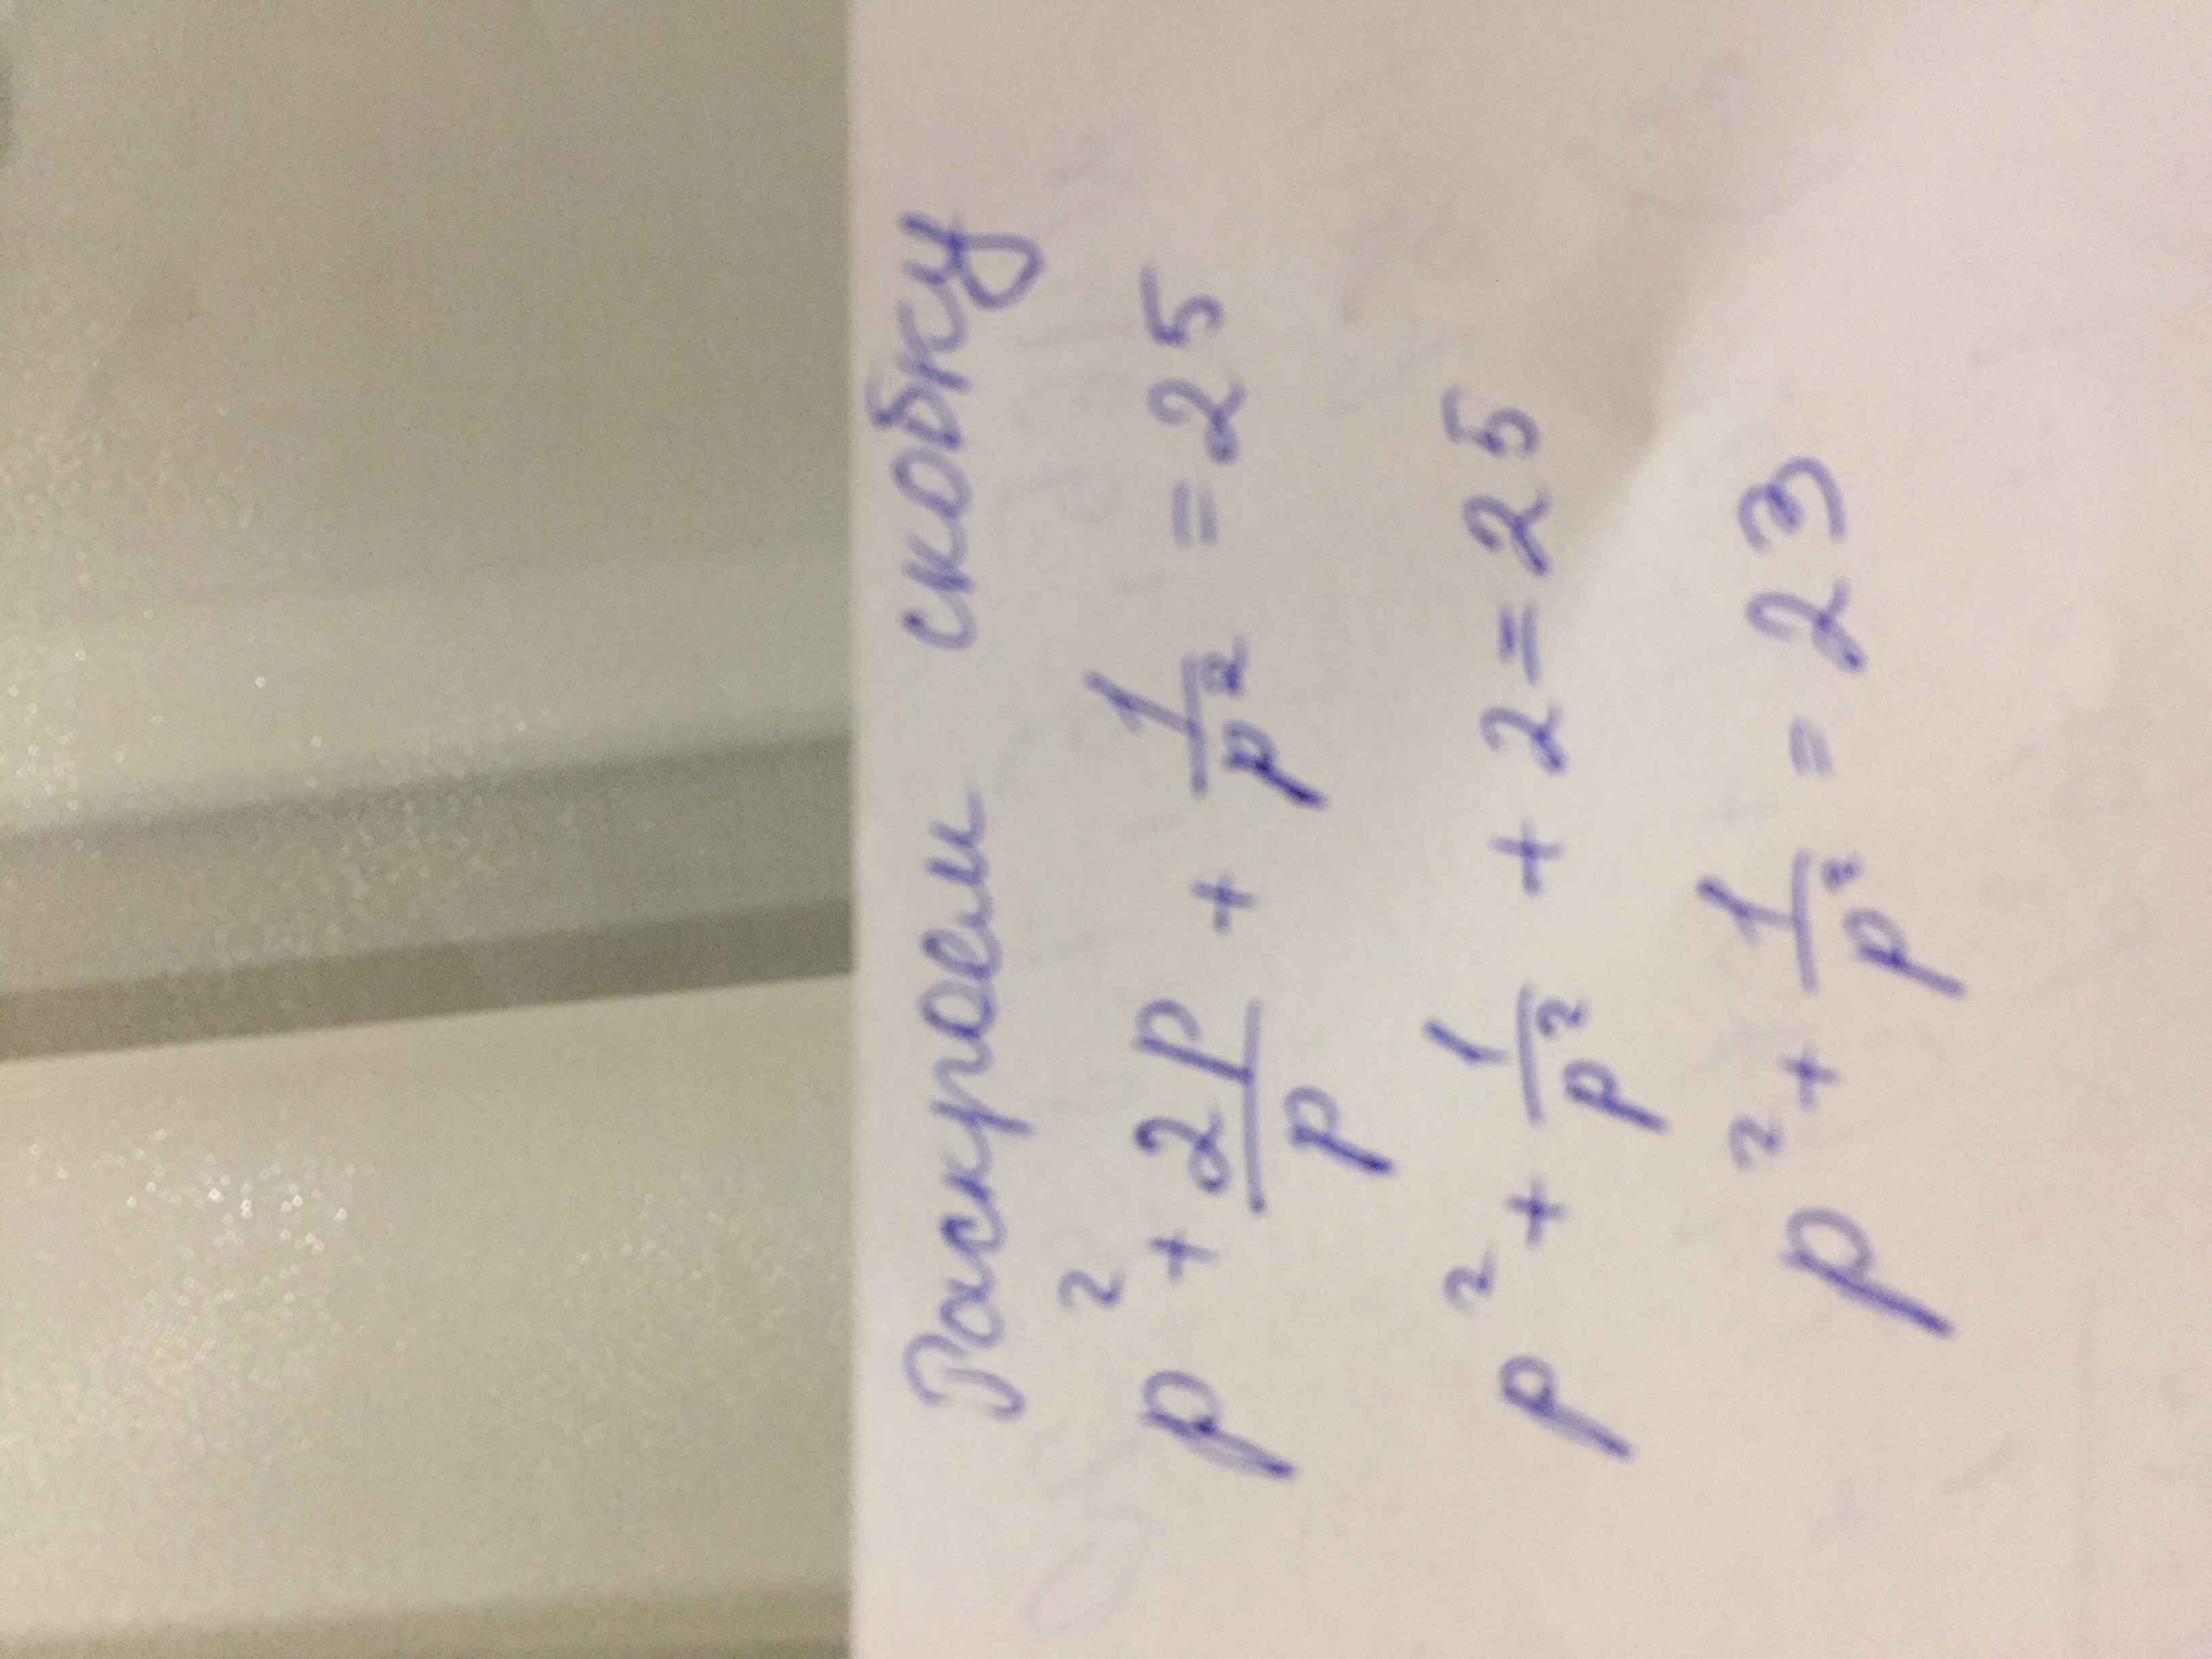 Раскроем скобку
p² + 2p/p + 1/p² = 25
p² + 1/p² + 2 = 25
p² + 1/p² = 23